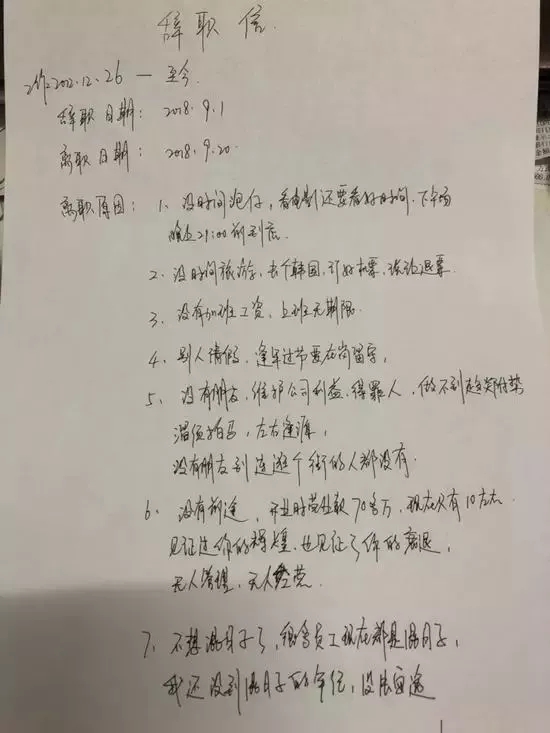 辞职信
工作:2012.12.26 — 至今.
辞职日期: 2018.9.1
离职日期: 2018.9.20.
离职原因: 1、没时间泡仔,看电影还要看好时间.下午场
晚上21:00前到底.
2、没时间旅游,去个韩国,订好机票,被迫退票.
3、没有加班工资,上班无期限.
4、别人请假,逢年过节要在岗留守,
5、没有朋友,维护公司利益,得罪人,做不到趋炎附势
溜须拍马,左右逢源,
没有朋友到连逛个街的人都没有.
6、没有前途,开业时营业款70多万,现在只有10左右.
见证过你的辉煌,也见证了你的衰退,
无人管理,无人经营.
7、不想混日子了,很多员工现在都是混日子,
我还没到混日子的年纪,没法